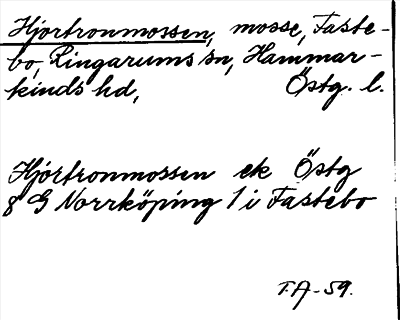 Hjortronmossen, mosse, Faste-
bo, Ringarums sn, Hammar-
kinds hd, Östg. l.
Hjortronmossen ek Östg
8 G Norrköping 1 i Fastebo
T.A-59.